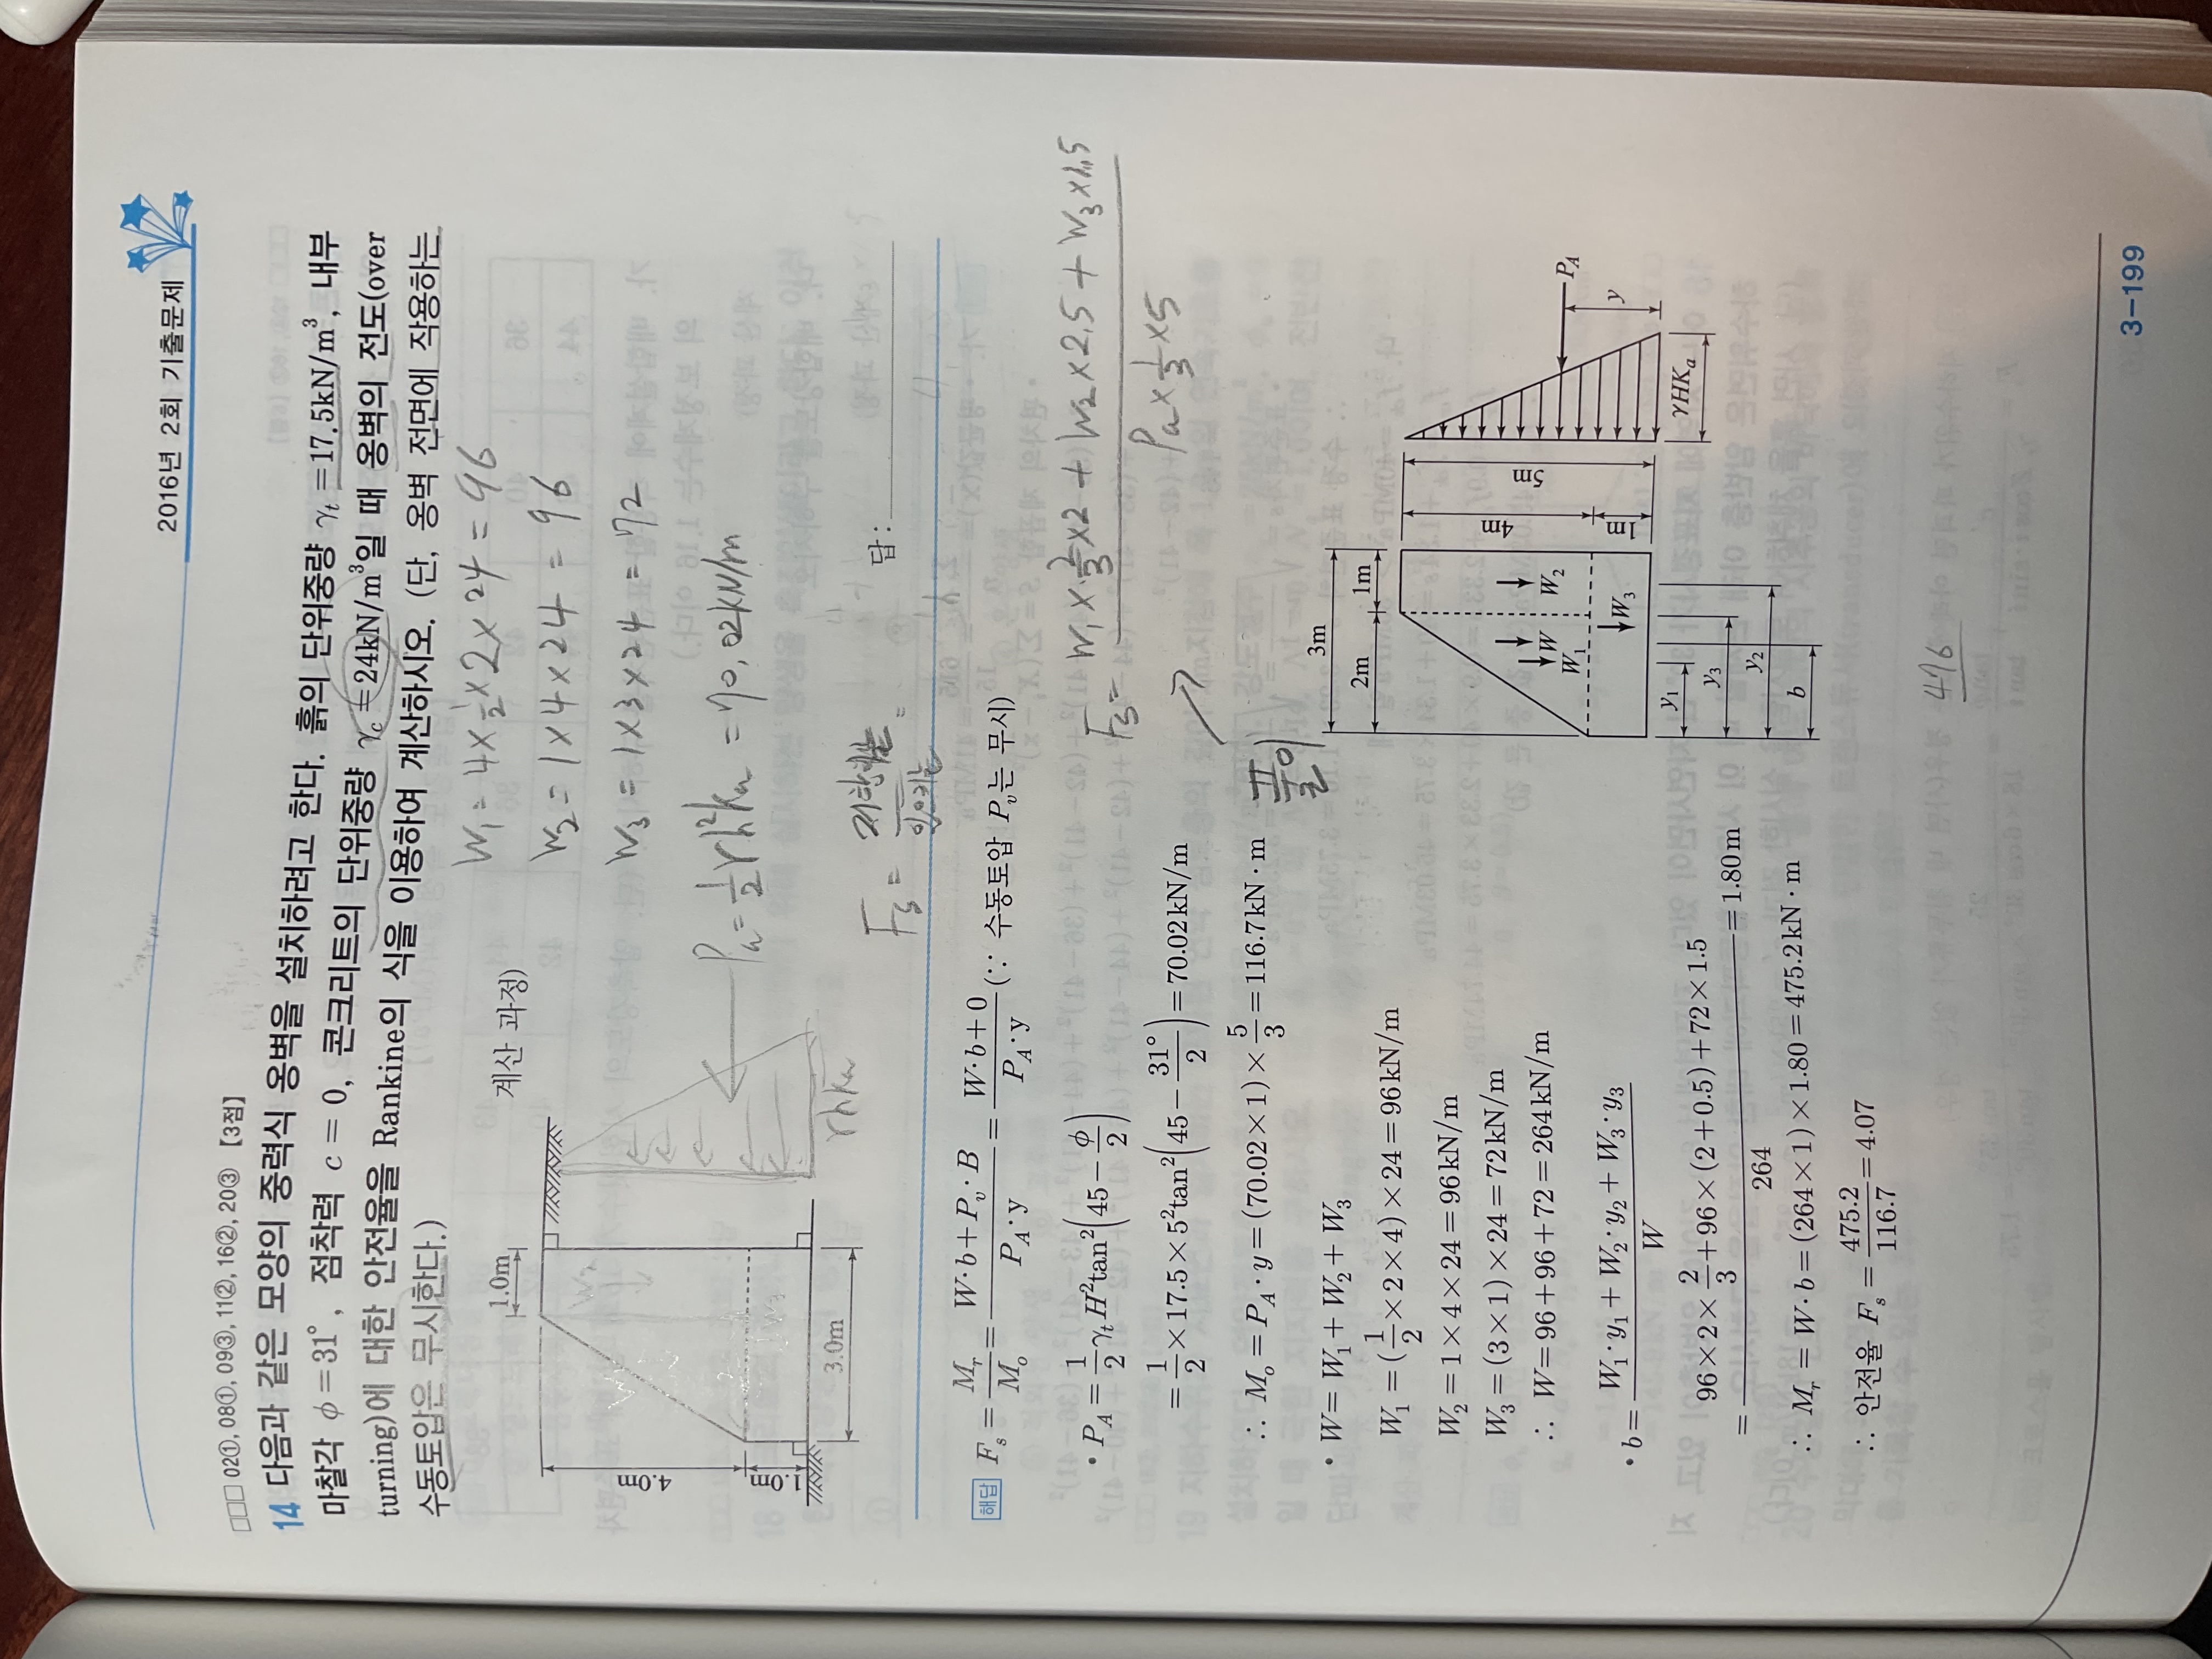 2016년 2회 기출문제
□□□ 02①, 08①, 09③, 11②, 16②, 20③ 【3점】
14 다음과 같은 모양의 중력식 옹벽을 설치하려고 한다. 흙의 단위중량 γt=17.5kN/m³, 내부
마찰각 φ=31°, 점착력 c=0, 콘크리트의 단위중량 γc=24kN/m³일 때 옹벽의 전도(over
turning)에 대한 안전율을 Rankine의 식을 이용하여 계산하시오. (단, 옹벽 전면에 작용하는
수동토압은 무시한다.)
계산 과정)
1.0m
4.0m
1.0m
3.0m
γhka
W1 = 4×1/2×2×24 = 96
W2 = 1×4×24 = 96
W3 = 1×3×24 = 72
Pa = 1/2γh²ka = 70.02kN/m
Fs =
답 :
해답 Fs = Mr/Mo = (W·b+Pv·B)/(PA·y) = (W·b+0)/(PA·y) (∵ 수동토압 Pv는 무시)
• PA = 1/2 γt H² tan²(45 − φ/2)
= 1/2 × 17.5 × 5² tan²(45 − 31°/2) = 70.02kN/m
∴ Mo = PA·y = (70.02×1)× 5/3 = 116.7kN·m
• W = W1 + W2 + W3
W1 = (1/2 × 2 × 4) × 24 = 96kN/m
W2 = 1×4×24 = 96kN/m
W3 = (3×1)×24 = 72kN/m
∴ W = 96+96+72 = 264kN/m
• b = (W1·y1 + W2·y2 + W3·y3)/W
= (96×2×2/3 + 96×(2+0.5) + 72×1.5)/264 = 1.80m
∴ Mr = W·b = (264×1)×1.80 = 475.2kN·m
∴ 안전율 Fs = 475.2/116.7 = 4.07
Fs = (W1×2/3×2 + W2×2.5 + W3×1.5)/(Pa×1/3×5)
풀이
3m
2m
1m
W
W1
W2
W3
4m
1m
5m
PA
y
γHKa
y1
y3
y2
b
476
3-199